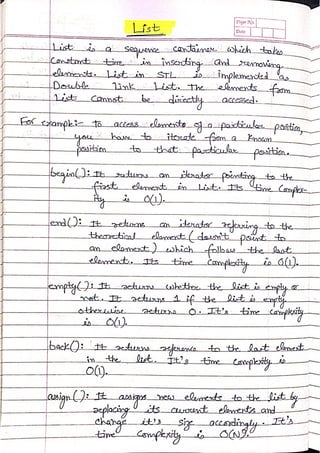 List
Page No.
Date
List is a sequence container which takes
constant time in inserting and removing
elements. List in STL is implemented as
Double link List. The elements from
List cannot be directly accessed.
For example:- To access elements of a particular position,
you have to iterate from a known
position to that particular position.
begin(): It returns an iterator pointing to the
first element in List. Its time Comple-
ity is O(1).
end(): It returns an iterator referring to the
theoretical element (doesn't point to
an element) which follows the last
element. Its time complexity is O(1).
empty(): It returns whether the list is empty or
not. It returns 1 if the list is empty
otherwise returns 0. It's time complexity
is O(1).
back(): It returns reference to the last element
in the list. It's time complexity is
O(1).
assign(): It assigns new elements to the list by
replacing its current elements and
change it's size accordingly. It's
time Complexity is O(N).